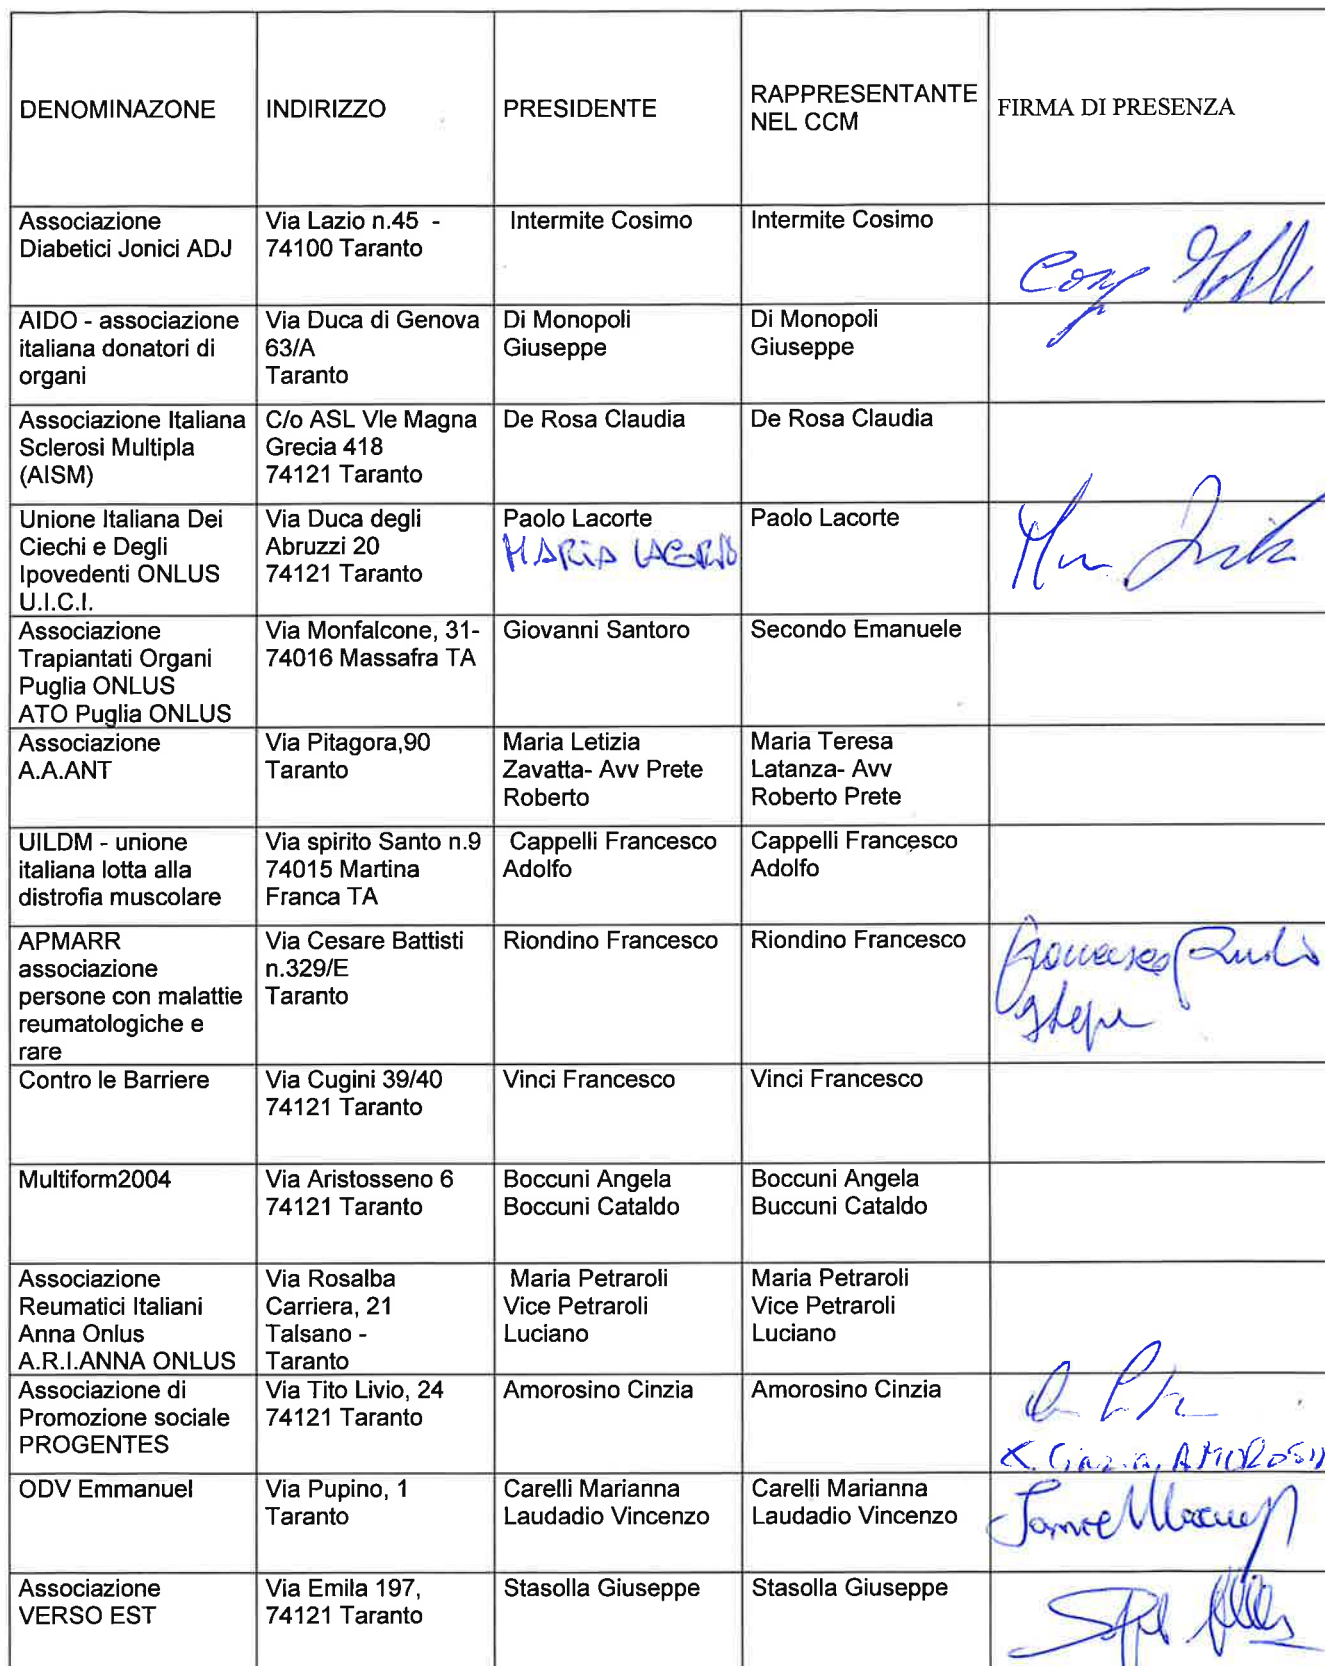 DENOMINAZONE
INDIRIZZO
PRESIDENTE
RAPPRESENTANTE
NEL CCM
FIRMA DI PRESENZA
Associazione
Diabetici Jonici ADJ
Via Lazio n.45 -
74100 Taranto
Intermite Cosimo
Intermite Cosimo
AIDO - associazione
italiana donatori di
organi
Via Duca di Genova
63/A
Taranto
Di Monopoli
Giuseppe
Di Monopoli
Giuseppe
Associazione Italiana
Sclerosi Multipla
(AISM)
C/o ASL Vle Magna
Grecia 418
74121 Taranto
De Rosa Claudia
De Rosa Claudia
Unione Italiana Dei
Ciechi e Degli
Ipovedenti ONLUS
U.I.C.I.
Via Duca degli
Abruzzi 20
74121 Taranto
Paolo Lacorte
MARIA
Paolo Lacorte
Associazione
Trapiantati Organi
Puglia ONLUS
ATO Puglia ONLUS
Via Monfalcone, 31-
74016 Massafra TA
Giovanni Santoro
Secondo Emanuele
Associazione
A.A.ANT
Via Pitagora,90
Taranto
Maria Letizia
Zavatta- Avv Prete
Roberto
Maria Teresa
Latanza- Avv
Roberto Prete
UILDM - unione
italiana lotta alla
distrofia muscolare
Via spirito Santo n.9
74015 Martina
Franca TA
Cappelli Francesco
Adolfo
Cappelli Francesco
Adolfo
APMARR
associazione
persone con malattie
reumatologiche e
rare
Via Cesare Battisti
n.329/E
Taranto
Riondino Francesco
Riondino Francesco
Francesco
Contro le Barriere
Via Cugini 39/40
74121 Taranto
Vinci Francesco
Vinci Francesco
Multiform2004
Via Aristosseno 6
74121 Taranto
Boccuni Angela
Boccuni Cataldo
Boccuni Angela
Buccuni Cataldo
Associazione
Reumatici Italiani
Anna Onlus
A.R.I.ANNA ONLUS
Via Rosalba
Carriera, 21
Talsano -
Taranto
Maria Petraroli
Vice Petraroli
Luciano
Maria Petraroli
Vice Petraroli
Luciano
Associazione di
Promozione sociale
PROGENTES
Via Tito Livio, 24
74121 Taranto
Amorosino Cinzia
Amorosino Cinzia
Cinzia AMOROSIN
ODV Emmanuel
Via Pupino, 1
Taranto
Carelli Marianna
Laudadio Vincenzo
Carelli Marianna
Laudadio Vincenzo
Associazione
VERSO EST
Via Emila 197,
74121 Taranto
Stasolla Giuseppe
Stasolla Giuseppe